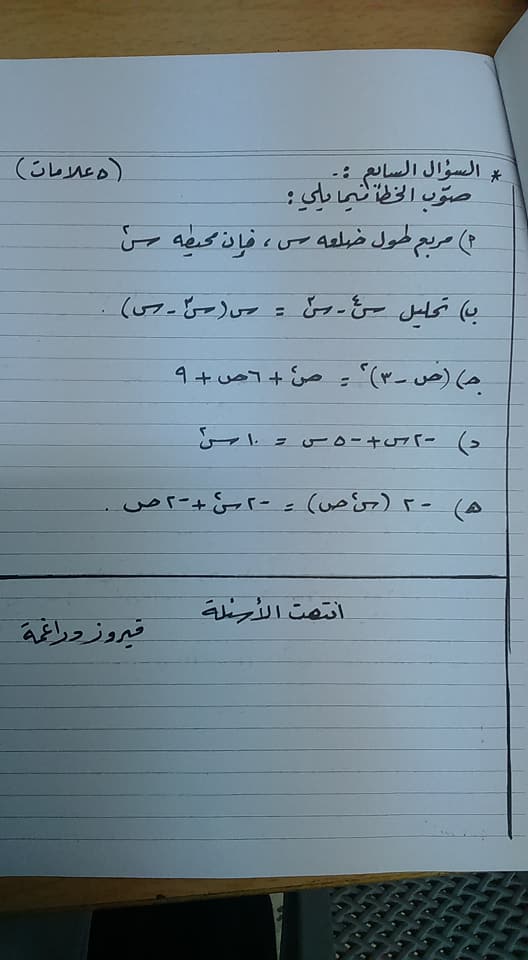 * السؤال السابع :- (٥ علامات)
صوّب الخطأ فيما يلي :
أ) مربع طول ضلعه س ، فإن محيطه س٢
ب) تحليل س٤ - س٢ = س(س٣ - س) .
جـ) (ص - ٣)٢ = ص٢ + ٦ص + ٩
د) -٢س + -٥س = ١٠س٢
هـ) -٢ (س٢ص) = -٢س٢ + -٢ص .
انتهت الأسئلة
فيروز دراغمة